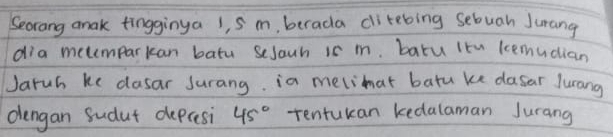 Seorang anak tingginya 1,5 m, berada di tebing sebuah Jurang
dia melemparkan batu sejauh 15 m. batu itu kemudian
Jatuh ke dasar Jurang. ia melihat batu ke dasar Jurang
dengan sudut depresi 45° tentukan kedalaman Jurang